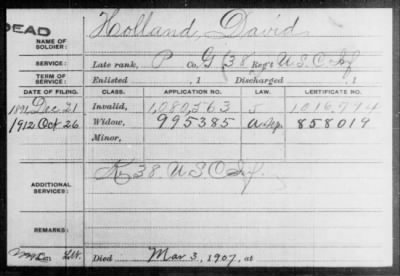 DEAD
NAME OF SOLDIER: Holland, David
Late rank, P Co. G, 38 Reg't U.S.C. Inf.
TERM OF SERVICE: Enlisted , 1 Discharged , 1
DATE OF FILING. CLASS. APPLICATION NO. LAW. CERTIFICATE NO.
1891 Dec. 21 Invalid, 1,080,563 1,016,774
1912 Oct 26 Widow, 995385 858019
Minor,
ADDITIONAL SERVICES: K 38 U.S.C. Inf.
REMARKS:
Died Mar 3, 1907, at